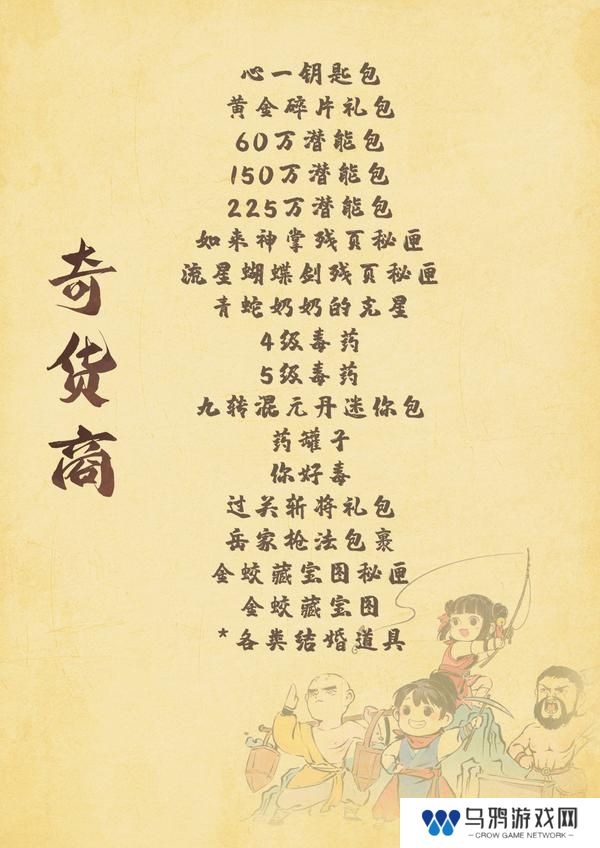 奇货商
心一钥匙包
黄金碎片礼包
60万潜能包
150万潜能包
225万潜能包
如来神掌残页秘匣
流星蝴蝶剑残页秘匣
青蛇奶奶的克星
4级毒药
5级毒药
九转混元丹迷你包
药罐子
你好毒
过关斩将礼包
岳家枪法包裹
金蛟藏宝图秘匣
金蛟藏宝图
*各类结婚道具
乌鸦游戏网
CROW GAME NETWORK